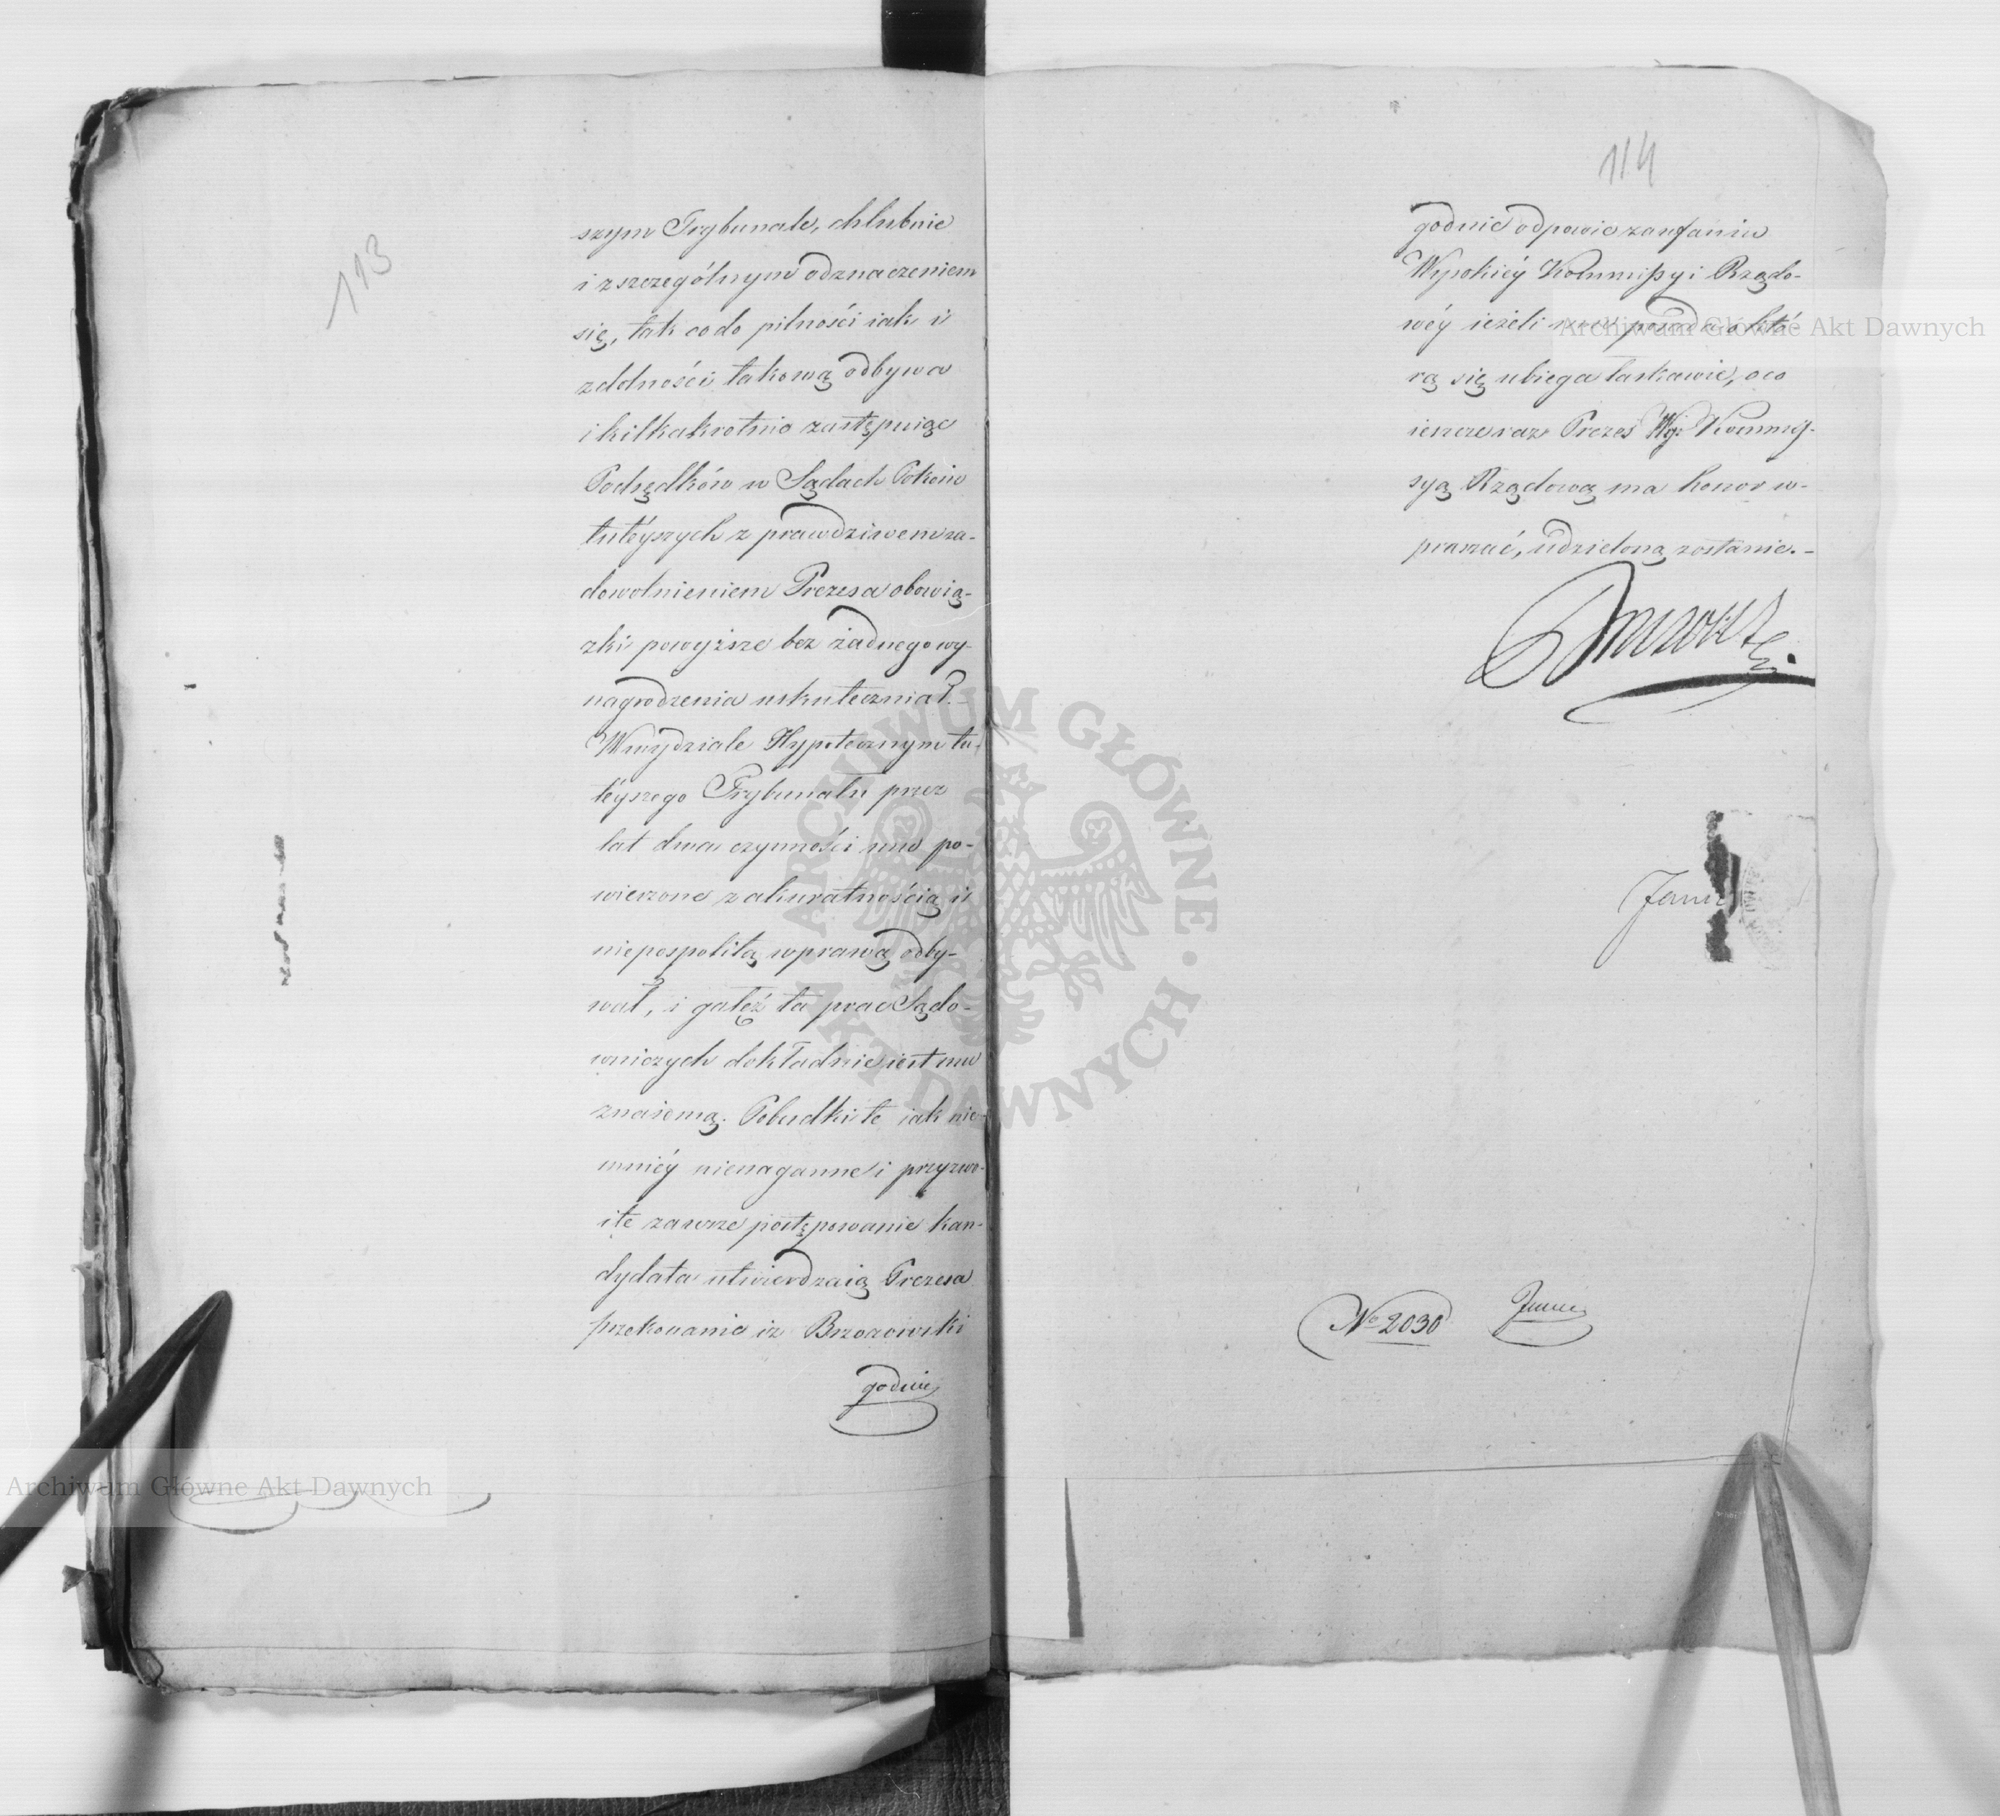 113
szym Trybunale, chlubnie
i z szczególnym odznaczeniem
się, tak co do pilności iak i
zdolności takową odbywa
i kilkakrotnie zastępuiąc
Podsędków w Sądach Pokoiu
tuteyszych z prawdziwem za-
dowolnieniem Prezesa obowią-
zki powyższe bez żadnego wy-
nagrodzenia uskuteczniał.-
W wydziale Hypotecznym tu-
teyszego Trybunału przez
lat dwa czynności mu po-
wierzone z akuratnością i
niepospolitą wprawą odby-
wał, i gałęź ta prac Sądo-
wniczych dokładnie iest mu
znaiomą. Pobudki te iak nie-
mniéy nienaganne i przyzwo-
ite zawsze postępowanie kan-
dydata utwierdzaią Prezesa
przekonanie iż Brzozowski
godnie
114
godnie odpowie zaufaniu
Wysokiéy Kommissyi Rządo-
wéy ieżeli mu posada o któ-
rą się ubiega łaskawie, o co
ieszcze raz Prezes Wy: Kommis-
syą Rządową ma honor u-
praszać, udzieloną zostanie.-
No 2030
Archiwum Główne Akt Dawnych
Archiwum Główne Akt Dawnych
ARCHIWUM GŁÓWNE AKT DAWNYCH